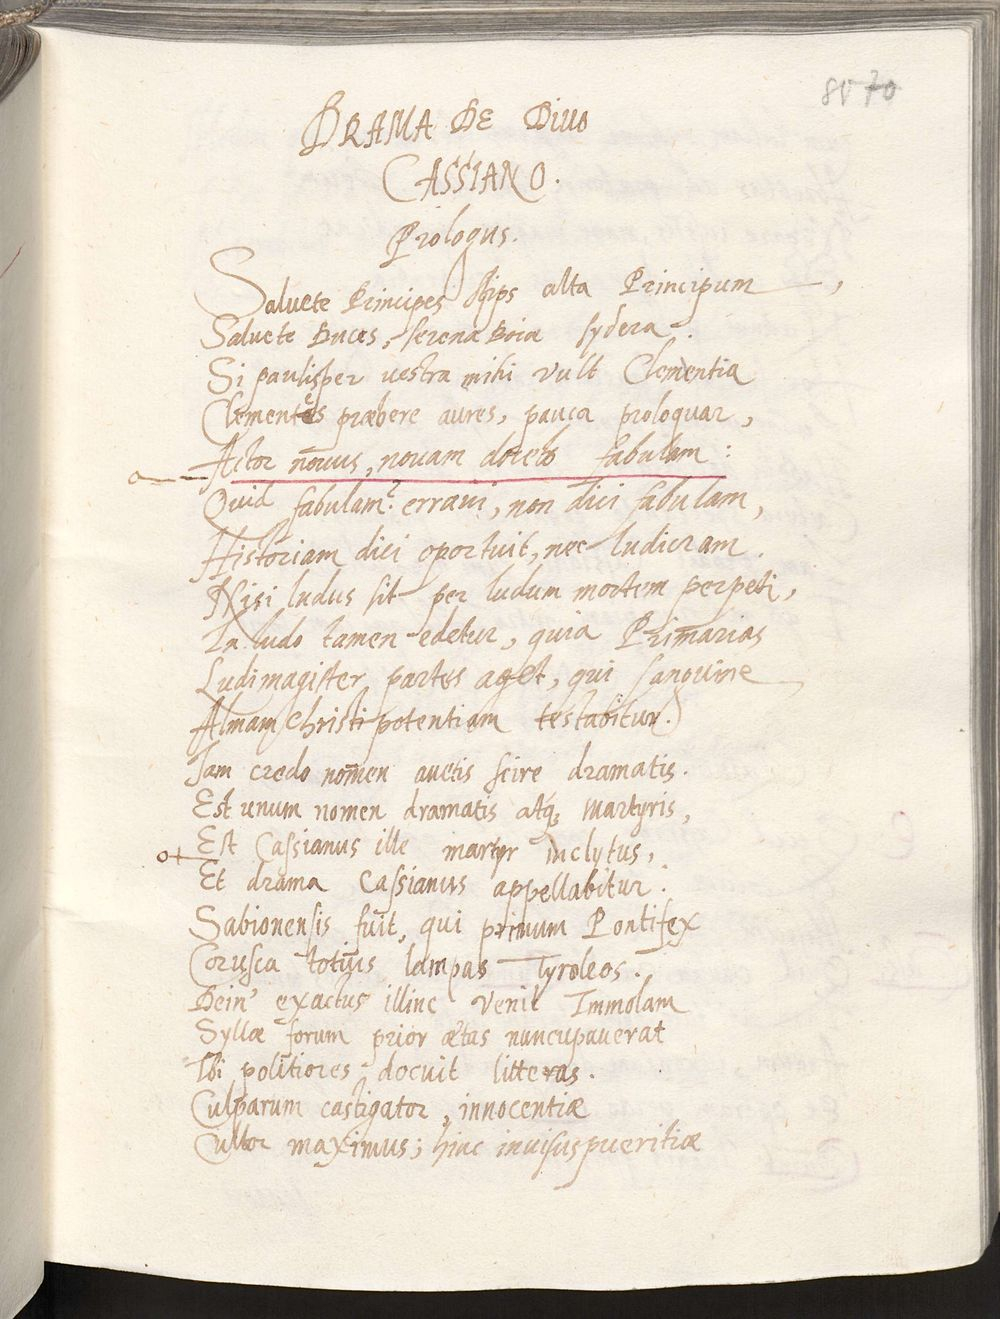 80 70
DRAMA DE Diuo
CASSIANO.
Prologus.
Saluete Principes stirps alta Principum,
Saluete Duces, serena Boia sydera.
Si paulisper uestra mihi vult Clementia
Clementes præbere aures, pauca proloquar,
Actor nouus, novam docebo fabulam:
Quid fabulam? erraui, non dici fabulam,
Historiam dici oportuit, nec ludicram.
Nisi ludus sit per ludum mortem perpeti,
In ludo tamen edetur, quia Primarias
Ludimagister partes aget, qui sanguine
Almam Christi potentiam testabitur.
Iam credo nomen auetis scire dramatis.
Est unum nomen dramatis atq; martyris,
Est Cassianus ille martyr inclytus,
Et drama Cassianus appellabitur.
Sabionensis fuit, qui primum Pontifex
Corusca totius lampas Tyroleos.
Dein' exactus illinc venit Immolam
Syllæ forum prior ætas nuncupauerat
Ibi politiores docuit litteras.
Culparum castigator, innocentiæ
Cultor maximus; hinc inuisus pueritiæ